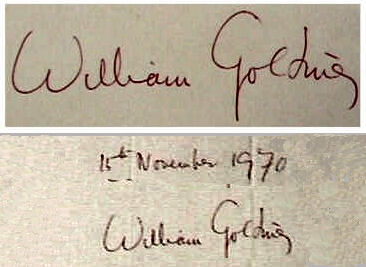 William Golding
15th November 1970
William Golding